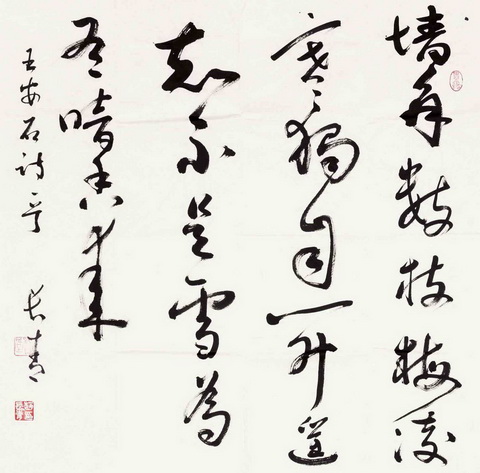 墙角数枝梅凌
寒独自开遥
知不是雪为
有暗香来
王安石诗一首 长青